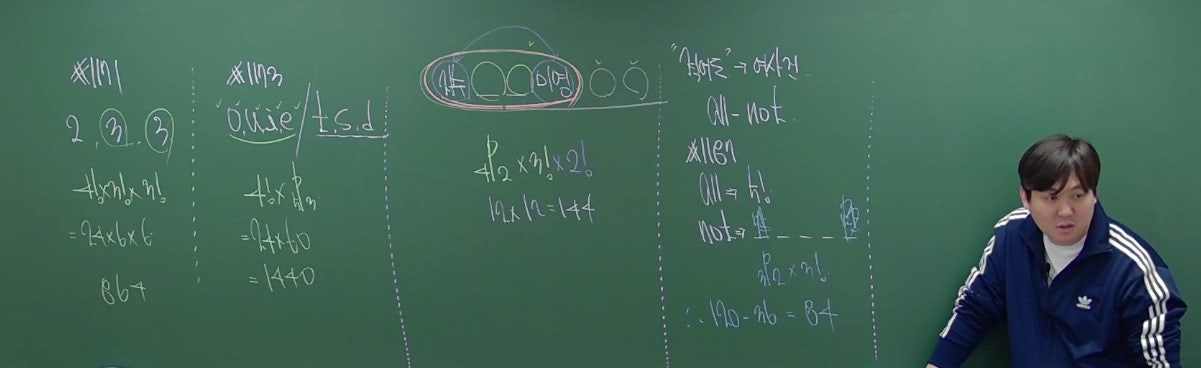 #1171
2, 3, 3
4!×3!×3!
=24×6×6
864
#1173
o.u.i.e/t.s.d
4!×5P3
=24×60
=1440
4P2×3!×2!
12×12=144
"적어도"→여사건.
all-not.
all⇒5!
not⇒
3P2×3!
∴120-36=84